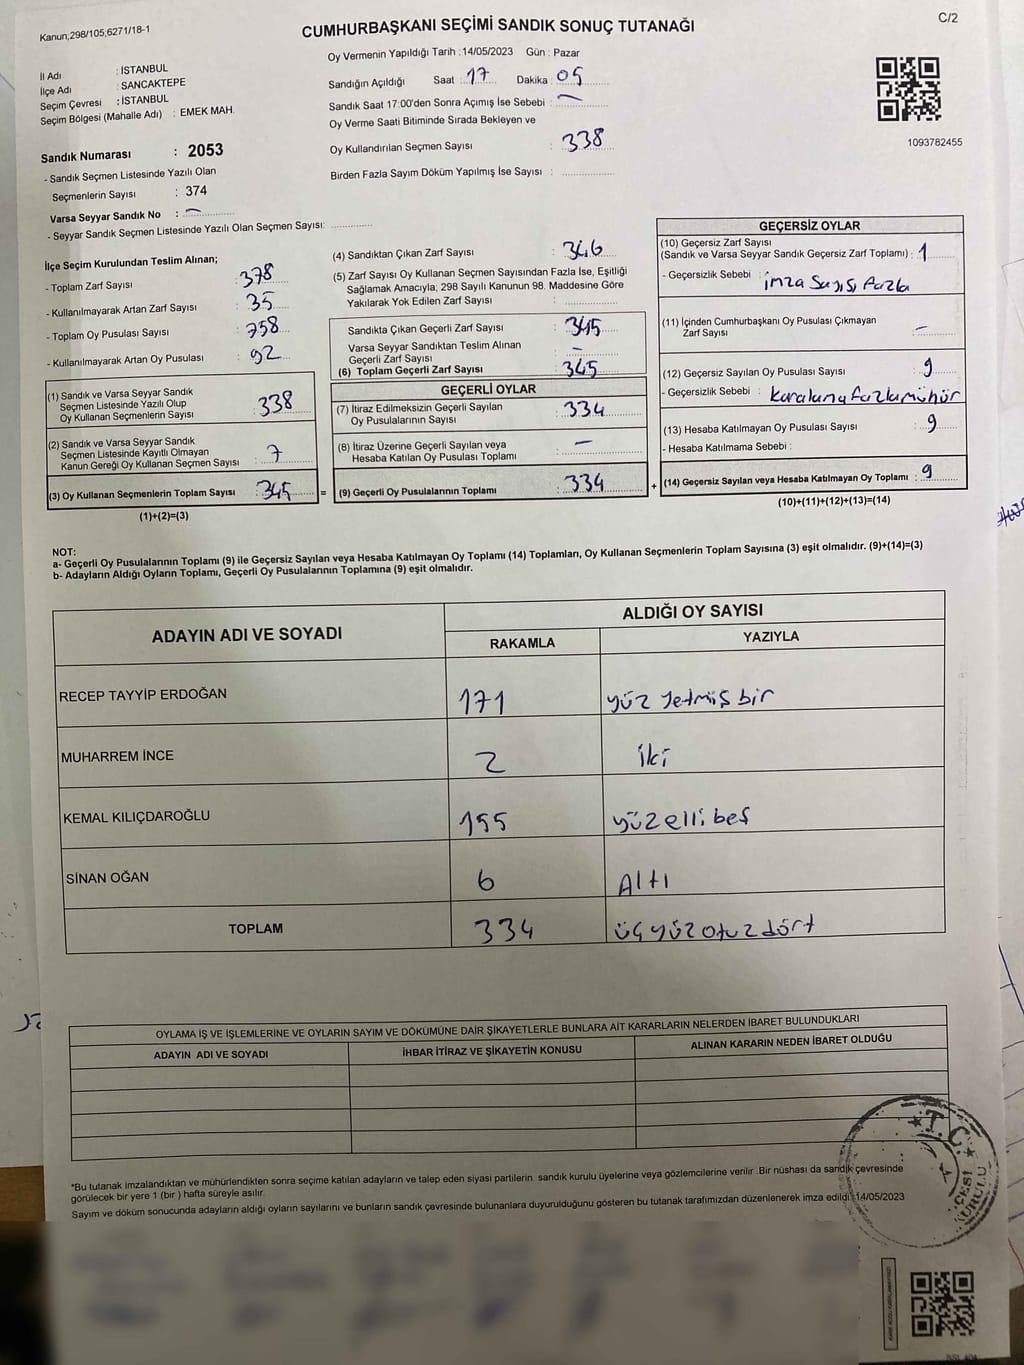 Kanun;298/105,6271/18-1
CUMHURBAŞKANI SEÇİMİ SANDIK SONUÇ TUTANAĞI
C/2
Oy Vermenin Yapıldığı Tarih : 14/05/2023 Gün : Pazar
İl Adı : İSTANBUL
İlçe Adı : SANCAKTEPE
Seçim Çevresi : İSTANBUL
Seçim Bölgesi (Mahalle Adı) : EMEK MAH.
Sandığın Açıldığı Saat : 17 Dakika : 05
Sandık Saat 17:00'den Sonra Açımış İse Sebebi : —
Oy Verme Saati Bitiminde Sırada Bekleyen ve
Oy Kullandırılan Seçmen Sayısı : 338
Birden Fazla Sayım Döküm Yapılmış İse Sayısı :
1093782455
Sandık Numarası : 2053
- Sandık Seçmen Listesinde Yazılı Olan
Seçmenlerin Sayısı : 374
Varsa Seyyar Sandık No : —
- Seyyar Sandık Seçmen Listesinde Yazılı Olan Seçmen Sayısı:
İlçe Seçim Kurulundan Teslim Alınan;
- Toplam Zarf Sayısı : 378
- Kullanılmayarak Artan Zarf Sayısı : 35
- Toplam Oy Pusulası Sayısı : 758
- Kullanılmayarak Artan Oy Pusulası : 92
(1) Sandık ve Varsa Seyyar Sandık
Seçmen Listesinde Yazılı Olup
Oy Kullanan Seçmenlerin Sayısı : 338
(2) Sandık ve Varsa Seyyar Sandık
Seçmen Listesinde Kayıtlı Olmayan
Kanun Gereği Oy Kullanan Seçmen Sayısı : 7
(3) Oy Kullanan Seçmenlerin Toplam Sayısı : 345 =
(1)+(2)=(3)
(4) Sandıktan Çıkan Zarf Sayısı : 346
(5) Zarf Sayısı Oy Kullanan Seçmen Sayısından Fazla İse, Eşitliği
Sağlamak Amacıyla, 298 Sayılı Kanunun 98. Maddesine Göre
Yakılarak Yok Edilen Zarf Sayısı :
Sandıkta Çıkan Geçerli Zarf Sayısı : 345
Varsa Seyyar Sandıktan Teslim Alınan
Geçerli Zarf Sayısı : —
(6) Toplam Geçerli Zarf Sayısı : 345
GEÇERLİ OYLAR
(7) İtiraz Edilmeksizin Geçerli Sayılan
Oy Pusulalarının Sayısı : 334
(8) İtiraz Üzerine Geçerli Sayılan veya
Hesaba Katılan Oy Pusulası Toplamı : —
(9) Geçerli Oy Pusulalarının Toplamı : 334 +
GEÇERSİZ OYLAR
(10) Geçersiz Zarf Sayısı
(Sandık ve Varsa Seyyar Sandık Geçersiz Zarf Toplamı) : 1
- Geçersizlik Sebebi : imza sayısı fazla
(11) İçinden Cumhurbaşkanı Oy Pusulası Çıkmayan
Zarf Sayısı : —
(12) Geçersiz Sayılan Oy Pusulası Sayısı : 9
- Geçersizlik Sebebi : karalama fazla mühür
(13) Hesaba Katılmayan Oy Pusulası Sayısı : 9
- Hesaba Katılmama Sebebi :
(14) Geçersiz Sayılan veya Hesaba Katılmayan Oy Toplamı : 9
(10)+(11)+(12)+(13)=(14)
NOT:
a- Geçerli Oy Pusulalarının Toplamı (9) ile Geçersiz Sayılan veya Hesaba Katılmayan Oy Toplamı (14) Toplamları, Oy Kullanan Seçmenlerin Toplam Sayısına (3) eşit olmalıdır. (9)+(14)=(3)
b- Adayların Aldığı Oyların Toplamı, Geçerli Oy Pusulalarının Toplamına (9) eşit olmalıdır.
ADAYIN ADI VE SOYADI
ALDIĞI OY SAYISI
RAKAMLA YAZIYLA
RECEP TAYYİP ERDOĞAN 171 yüz yetmiş bir
MUHARREM İNCE 2 iki
KEMAL KILIÇDAROĞLU 155 yüz elli beş
SİNAN OĞAN 6 Altı
TOPLAM 334 üçyüz otuz dört
OYLAMA İŞ VE İŞLEMLERİNE VE OYLARIN SAYIM VE DÖKÜMÜNE DAİR ŞİKAYETLERLE BUNLARA AİT KARARLARIN NELERDEN İBARET BULUNDUKLARI
ADAYIN ADI VE SOYADI İHBAR İTİRAZ VE ŞİKAYETİN KONUSU ALINAN KARARIN NEDEN İBARET OLDUĞU
*Bu tutanak imzalandıktan ve mühürlendikten sonra seçime katılan adayların ve talep eden siyasi partilerin sandık kurulu üyelerine veya gözlemcilerine verilir .Bir nüshası da sandık çevresinde
görülecek bir yere 1 (bir ) hafta süreyle asılır.
Sayım ve döküm sonucunda adayların aldığı oyların sayılarını ve bunların sandık çevresinde bulunanlara duyurulduğunu gösteren bu tutanak tarafımızdan düzenlenerek imza edildi. 14/05/2023
T.C.